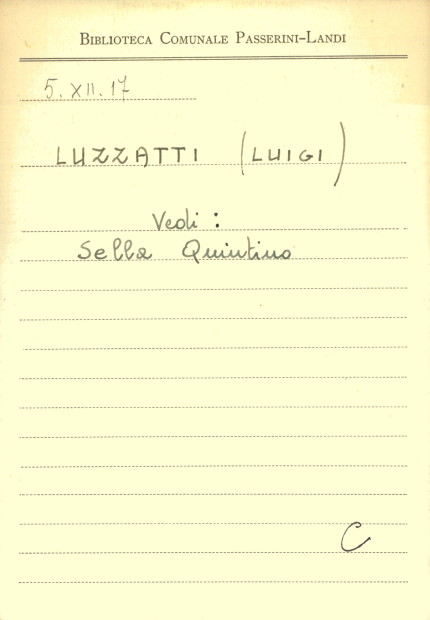 Biblioteca Comunale Passerini-Landi
5. XII. 17
LUZZATTI (LUIGI)
Vedi :
Sella Quintino
C